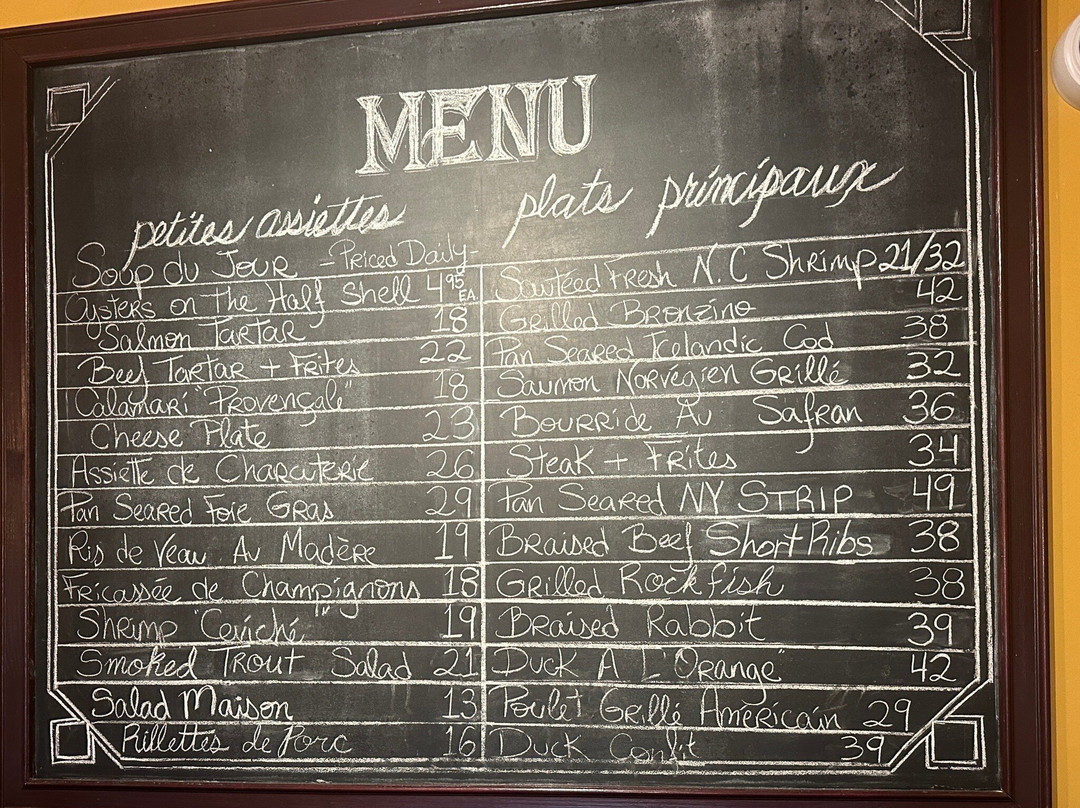 MENU
petites assiettes
Soup du Jour - Priced Daily -
Oysters on The Half Shell 4.95 EA.
Salmon TarTar 18
Beef TarTar + Frites 22
Calamari "Provençale" 18
Cheese Plate 23
Assiette de Charcuterie 26
Pan Seared Foie Gras 29
Ris de Veau Au Madère 19
Fricassée de Champignons 18
Shrimp Ceviché 19
Smoked Trout Salad 21
Salad Maison 13
Rillettes de Porc 16
plats principaux
Sautéed Fresh N.C Shrimp 21/32
Grilled Bronzino 42
Pan Seared Icelandic Cod 38
Saumon Norvégien Grillé 32
Bourride Au Safran 36
Steak + Frites 34
Pan Seared NY STRIP 49
Braised Beef Short Ribs 38
Grilled Rockfish 38
Braised Rabbit 39
Duck A L'Orange" 42
Poulet Grillé Américain 29
Duck Confit 39